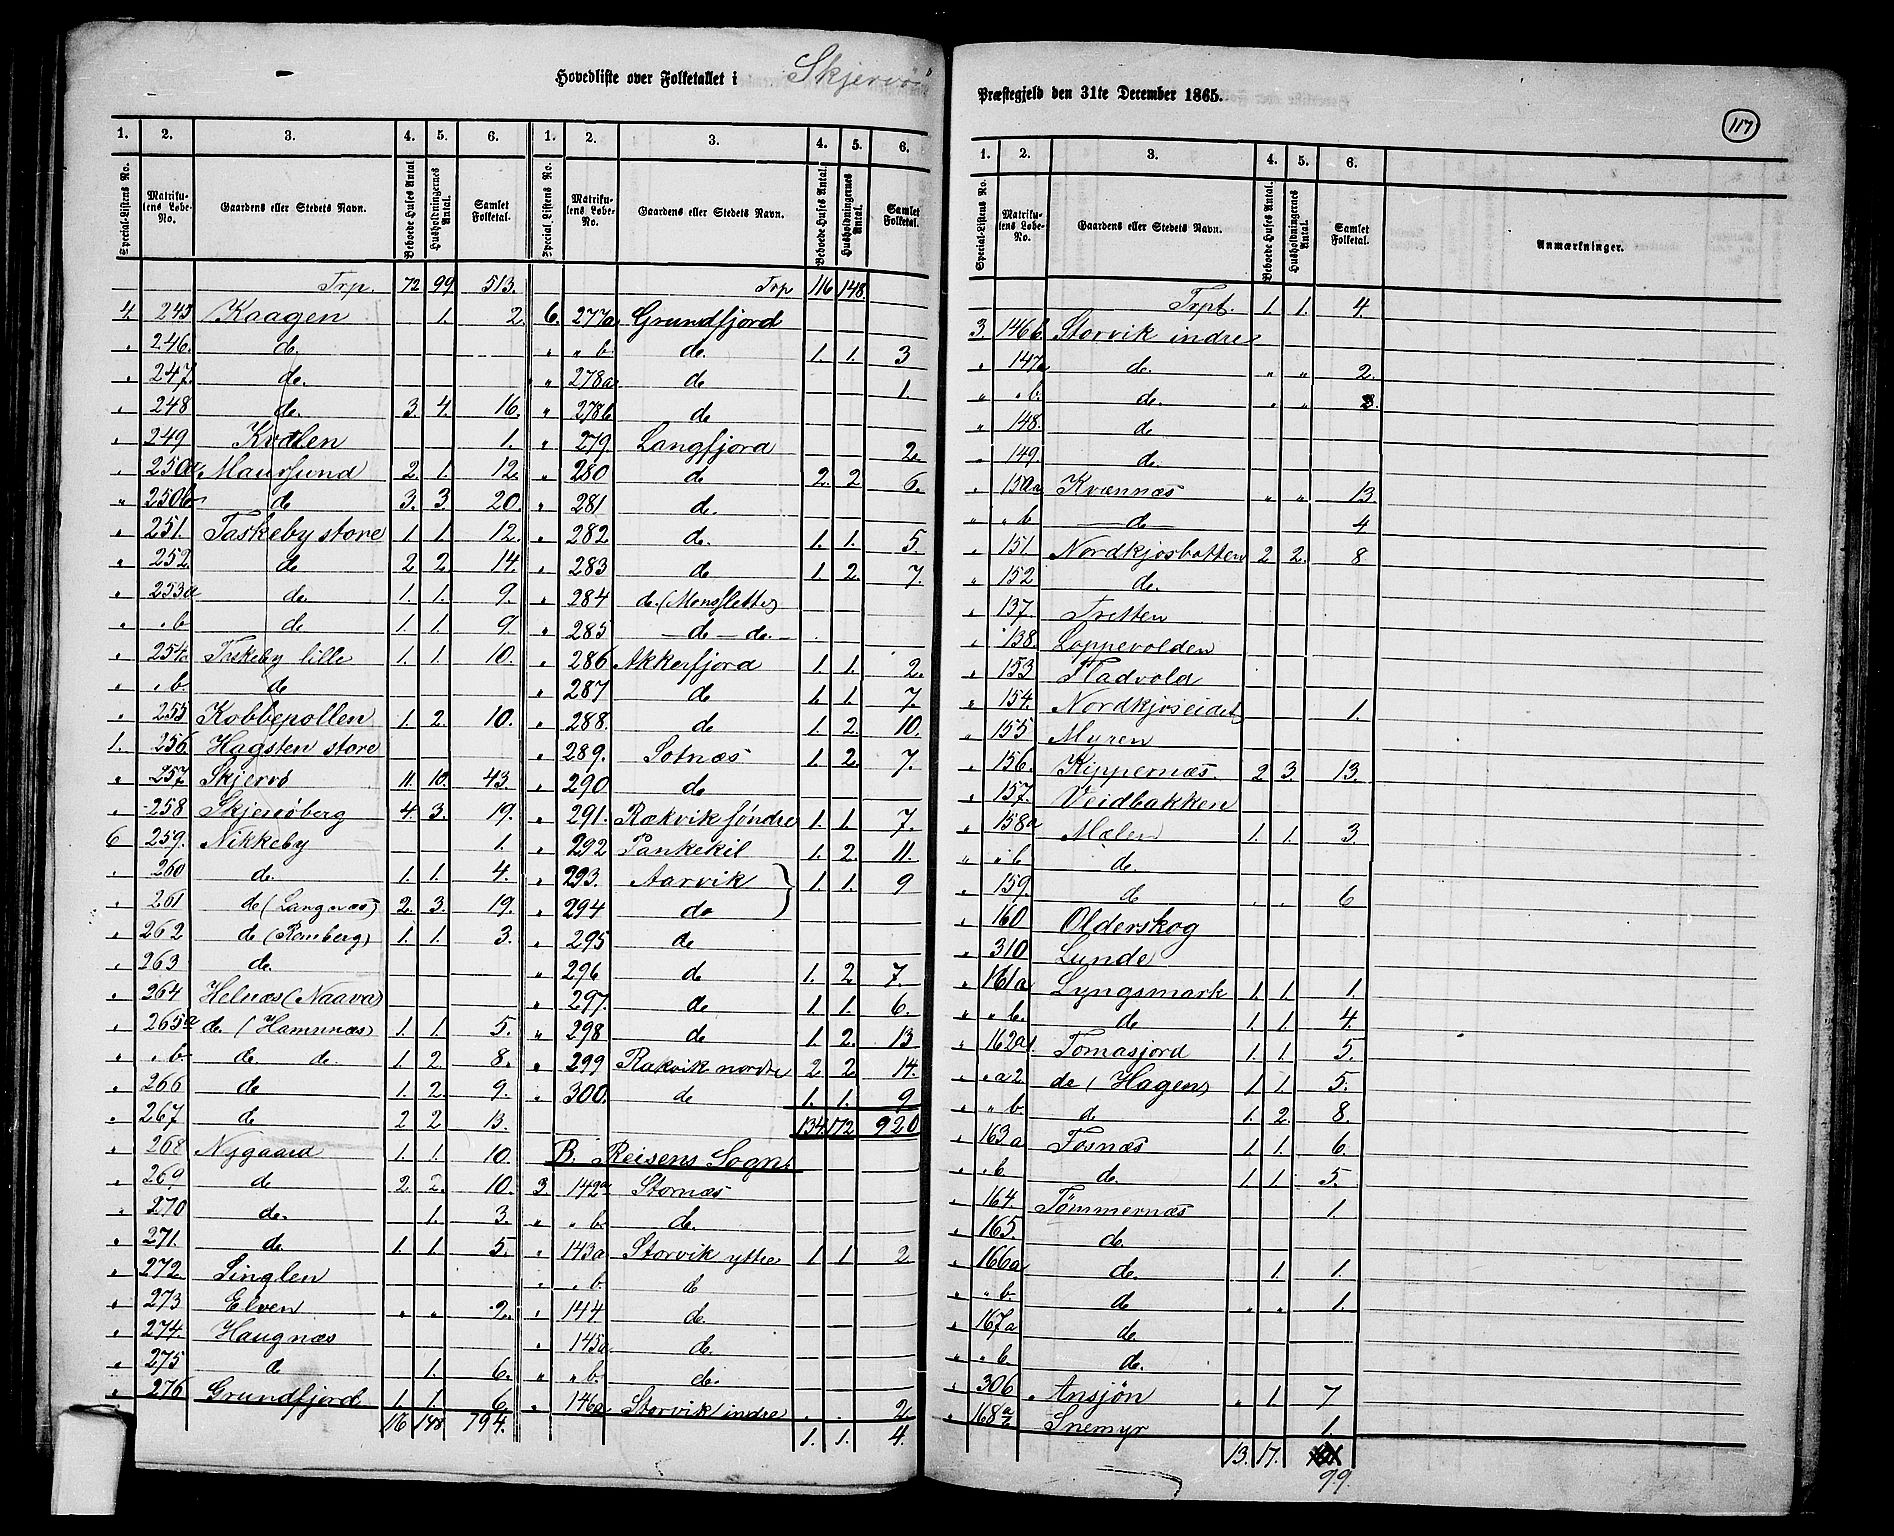 Hovedliste over Folketallet i Skjervö
1. 2. 3. 4. 5. 6. 1. 2. 3. 4. 5. 6.
Special-Listens No. Matrikulens Løbe-No. Gaardens eller Stedets Navn. Beboede Huses Antal Husholdningernes Antal. Samlet Folketal. Special-Listens No. Matrikulens Løbe-No. Gaardens eller Stedets Navn. Beboede Huses Antal. Husholdningernes Antal. Samlet Folketal.
Trp. 72 99 513.
4. 245 Kaagen 1. 2.
„ 246. de.
„ 247. de.
„ 248 de. 3. 4. 16.
„ 249 Kvalen 1.
„ 250a Maursund 2. 1. 12.
„ 250b de 3. 3. 20.
„ 251. Taskeby store 1. 1. 12.
„ 252 de 2 2. 14.
„ 253a de. 1. 1. 9.
„ „ b de 1. 1. 9.
„ 254a Taskeby lille 1. 1. 10.
„ „ b. de
„ 255 Kobbepollen 1. 2. 10.
1. 256. Hagsten store
„ 257. Skjervö 11. 10. 43.
„ 258 Skjervöberg 4. 3. 19.
6 259. Nikkeby 1.
„ 260 de. 1. 1. 4.
„ 261 de (Langnæs) 2. 3. 19.
„ 262 de (Ramberg) 1. 1. 3.
„ 263 de.
„ 264 Helnæs (Naava)
„ 265a de. (Hamnnæs) 1. 1. 5.
„ „ b de de. 1. 2. 8.
„ 266 de 1. 2. 9.
„ 267 de 2 2 13.
„ 268 Nygaard 1. 1. 10.
„ 269 de 2. 2. 10.
„ 270 de. 1. 3.
„ 271. de 1. 1. 5.
„ 272. Singlen
„ 273 Elven „ „ 2.
„ 274. Haugnæs
„ 275 de 1. 6.
„ 276 Grundfjord 1. 1. 6.
116 148 794.
Trp 116 148.
6. 277a Grundfjord
„ „ b. de. 1. 1. 3
„ 278a de 1.
„ 278b de
„ 279. Langfjord 2.
„ 280 de 2. 2 6.
„ 281 de.
„ 282 de. 1. 1. 5.
„ 283 de 1. 2. 7.
„ 284 de. (Monsflette)
„ 285 — de — de. —
„ 286 Akkerfjord 1. 1. 2.
„ 287 de 1. 1. 7.
„ 288. de 1. 2. 10.
„ 289. Sotnæs 1. 2. 7.
„ 290 de
„ 291. Rækvik søndre 1. 1. 7.
„ 292 Pankekil 1. 2. 11.
„ 293. Aarvik 1. 1. 9
„ 294 de
„ 295 de
„ 296 de 1. 2 7.
„ 297. de 1. 1. 6.
„ 298 de 1. 2. 13
„ 299 Rakvik nordre 2 2 14.
„ 300. de 1. 1. 9
134. 172 920
B. Reisens Sogn.
3. 142a Stornæs
„ „ b. de.
„ 143a Storvik yttre 1 1 2
„ „ b. de
„ 144 de.
„ 145a de.
„ „ b. de.
„ 146a Storvik indre . . 2
1. 1. 4.
Præstegjeld den 31te December 1865.
117
1. 2. 3. 4. 5. 6.
Special-Listens No. Matrikulens Løbe-No. Gaardens eller Stedets Navn. Beboede Huses Antal. Husholdningernes Antal. Samlet Folketal. Anmærkninger.
Trpt. 1. 1. 4.
3. 146b. Storvik indre
„ 147a de. „ „ 2.
„ „ b. de. „ „
„ 148. de
„ 149. de.
„ 150a Kvænnæs „ „ 13.
„ „ b — de — 4
„ 151. Nordkjosbotten 2 2. 8
„ 152 de.
„ 137. Tretten
„ 138. Loppevolden
„ 153 Fladvold
„ 154. Nordkjoseidet 1.
„ 155 Myren
„ 156. Kippernæs. 2 3. 13.
„ 157. Veidbakken
„ 158a Mælen 1. 1. 3.
„ „ b de.
„ 159. de . . 6
„ 160 Olderskog
„ 310 Lunde
„ 161a Lyngsmark 1. 1. 1.
„ „ b. de 1. 1. 4.
„ 162a1. Tomasjord 1. 1. 5.
„ „ a2 de (Hagen) 1 1. 5.
„ „ b. de 1. 2. 8.
„ 163a Fosnæs 1. 1. 6.
„ „ b de. 1. 1. 5.
„ 164. Tømmernæs 1.
„ 165. de.
„ 166a de. 1. 1.
„ „ b. de „ „ 1.
„ 167a de
„ „ b. de.
„ 306 Ansjön „ 1. 7
„ 168a/b Snemyr 1.
13. 17.
99.